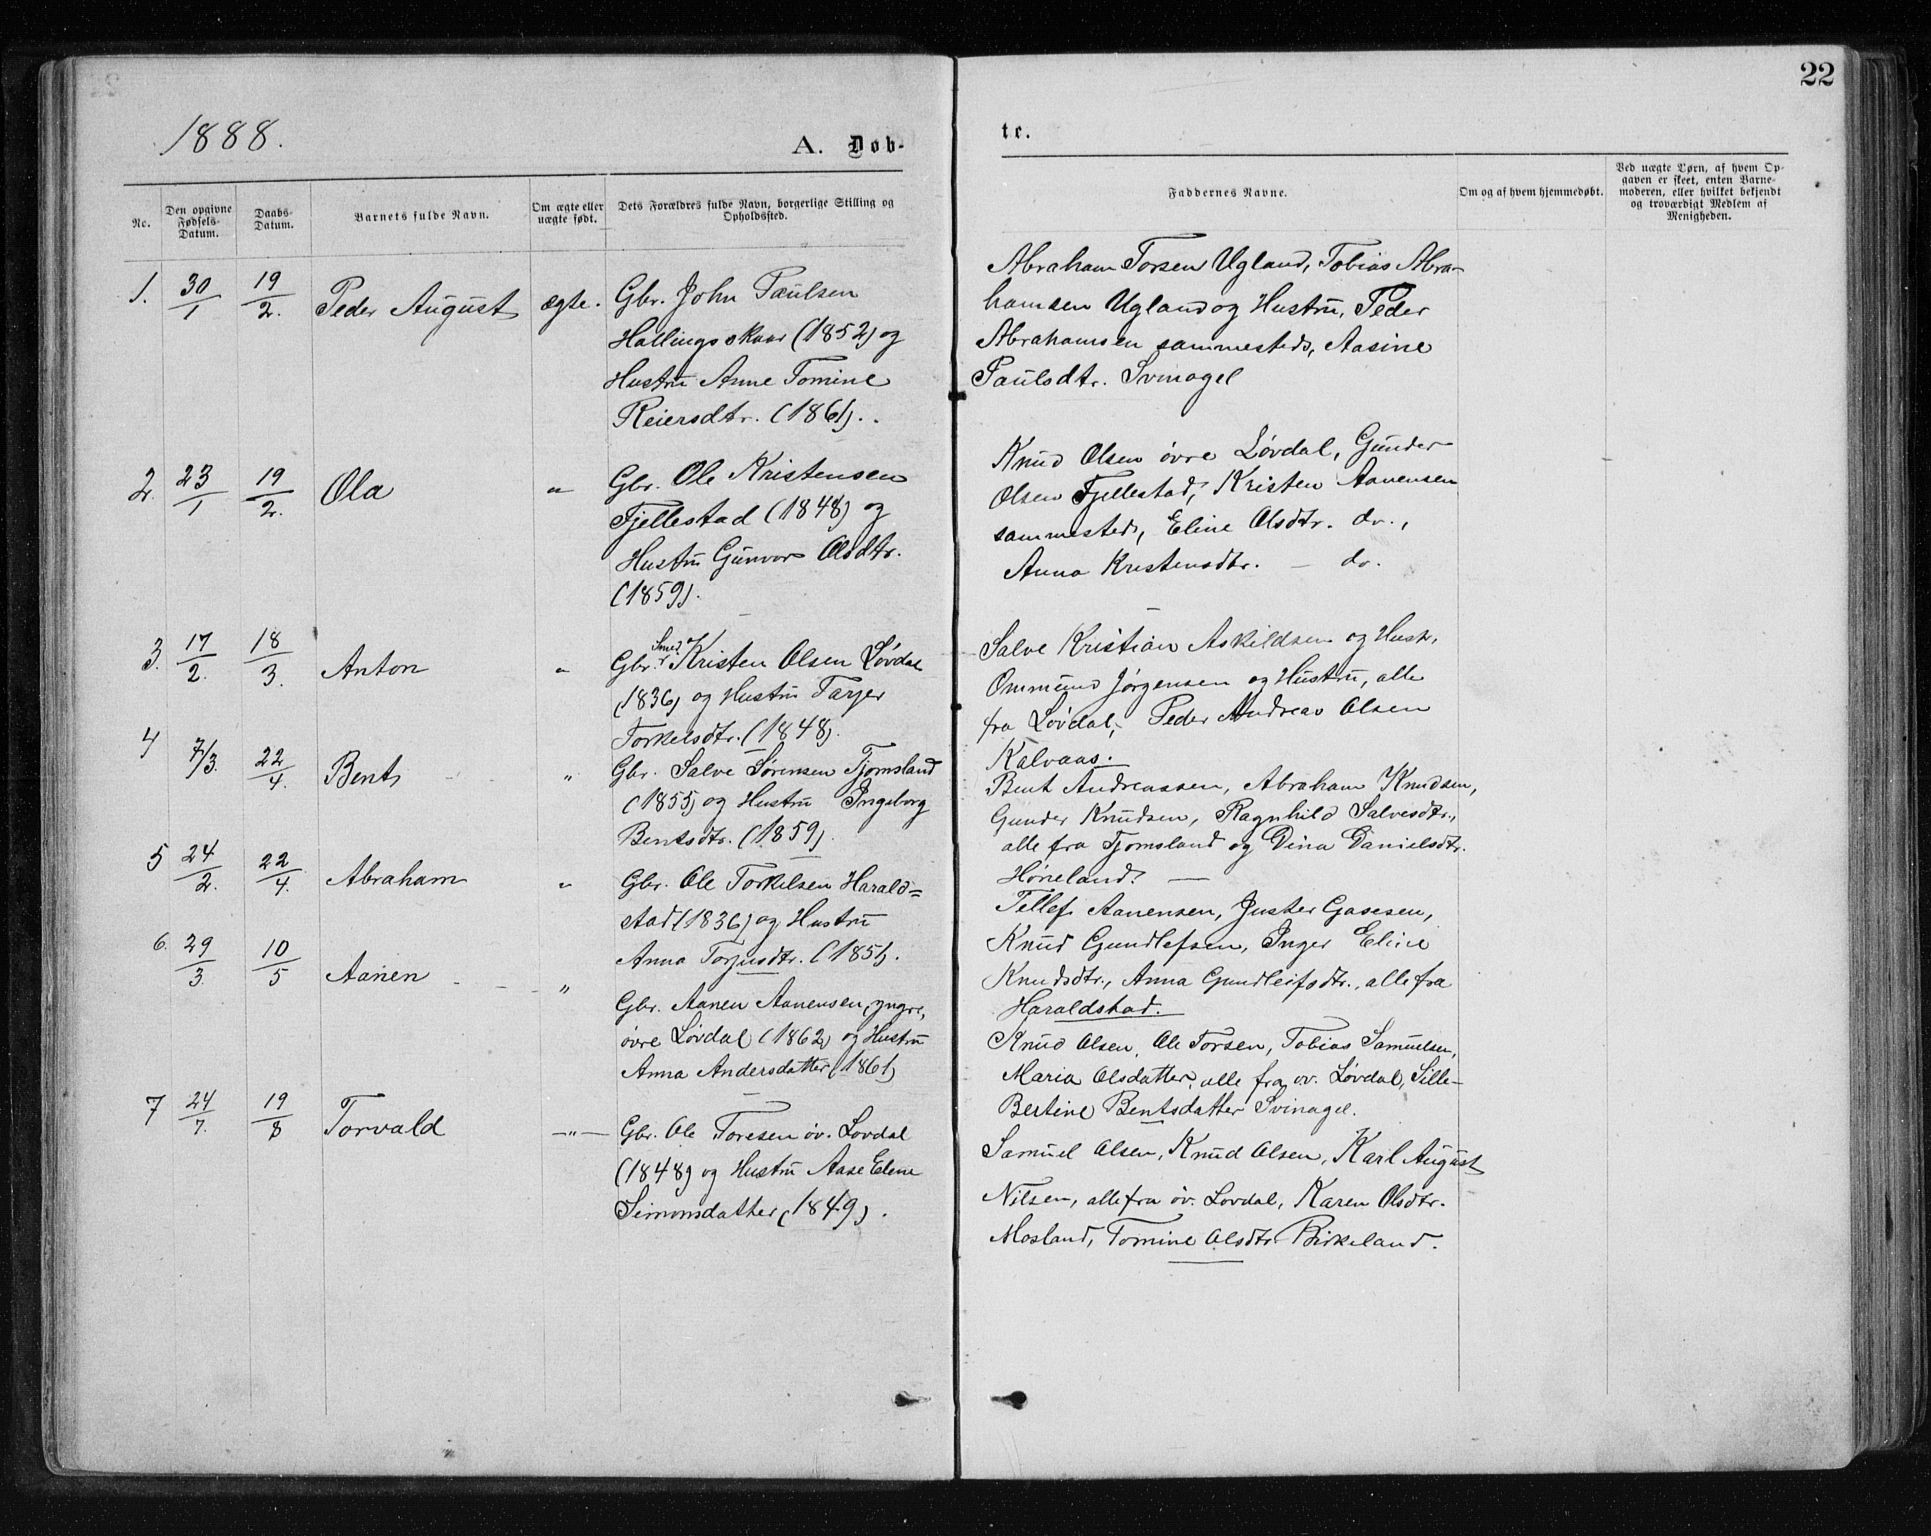 22
1888.
A. Døb-
te.
No.
Den opgivne Fødsels-Datum.
Daabs-Datum.
Barnets fulde Navn.
Om ægte eller uægte født.
Dets Forældres fulde Navn, borgerlige Stilling og Opholdssted.
Faddernes Navne.
Om og af hvem hjemmedøbt.
Ved uægte Børn, af hvem Op-
gaven er skeet, enten Barne-
moderen, eller hvilket bekjendt
og troværdigt Medlem af
Menigheden.
1. 30/1 19/2. Peder August ægte. Gbr. John Paulsen
Hallingsskaar (1852) og
Hustru Anne Tomine
Reiersdtr. (1861).
Abraham Torsen Ugland, Tobias Abra-
hamsen Ugland og Hustru, Peder
Abrahamsen sammesteds, Aasine
Paulsdtr. Svinagel
2. 23/1 19/2. Ola " Gbr. Ole Kristensen
Fjellestad (1848) og
Hustru Gunvor Olsdtr.
(1859).
Knud Olsen øvre Løvdal, Gunder
Olsen Fjellestad, Kristen Aanensen
sammesteds, Eline Olsdtr. do.,
Anna Kristensdtr. — do.
3. 17/2. 18/3. Anton " Gbr. Smed Kristen Olsen Løvdal
(1836) og Hustru Tarjer
Torkelsdtr. (1848).
Salve Kristian Askildsen og Hustr.
Ommund Jørgensen og Hustru, alle
fra Løvdal, Peder Andreas Olsen
Kalvaas.
4 7/3. 22/4. Bent " Gbr. Salve Sørensen Tjomsland
(1855) og Hustru Ingeborg
Bentsdtr. (1859).
Bent Andreassen, Abraham Knudsen,
Gunder Knudsen, Ragnhild Salvesdtr.,
alle fra Tjomsland og Dina Danielsdtr.
Høneland. —
5 24/2. 22/4. Abraham " Gbr. Ole Torkilsen Harald=
stad (1836) og Hustru
Anna Torjusdtr. (1851).
Tellef Aanensen, Juster Gasesen,
Knud Gundlefsen, Inger Eline
Knudsdtr., Anna Gundleifsdtr., alle fra
Haraldstad.
6. 29/3. 10/5 Aanen " Gbr. Aanen Aanensen, yngre,
øvre Løvdal (1862) og Hustru
Anna Andersdatter (1861)
Knud Olsen, Ole Torsen, Tobias Samuelsen,
Maria Olsdatter, alle fra øv. Løvdal, Sille-
Bertine Bentsdatter Svinagel.
7 24/7. 19/8 Torvald —"— Gbr. Ole Toresen øv. Lovdal
(1848) og Hustru Aase Elene
Simonsdatter (1849).
Samuel Olsen, Knud Olsen, Karl August
Nilsen, alle fra øv. Lovdal, Karen Olsdtr.
Mosland, Tomine Olsdtr Birkeland.